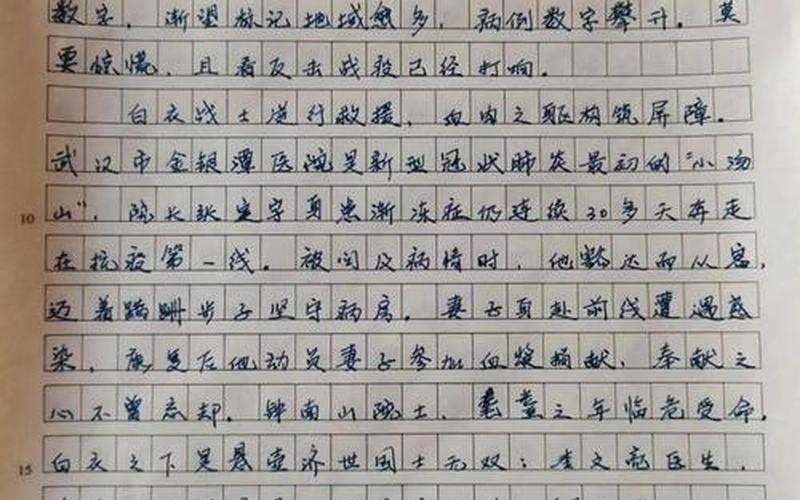 数字，渐望旅记地域愈多，病例数字攀升。莫
要惊慌，且看反击战役已经打响。
白衣战士逆行救援，血肉之躯构筑屏障。
武汉市金银潭医院是新型冠状肺炎最初的“小汤
10 山”，院长张定宇身患渐冻症仍连续30多天奔走
在抗疫第一线。被问及病情时，他豁达而从容，
迈着蹒跚步子坚守病房。妻子身赴前线遭遇感
染，康复后他动员妻子参加血浆捐献，奉献之
心不曾忘却。钟南山院士，耄耋之年临危受命，
15 白衣之下是悬壶济世国士无双；李文亮医生，